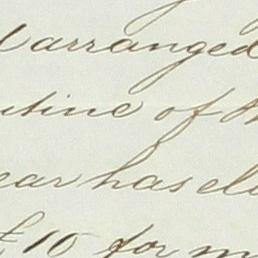 arranged
utine of th
ear has el
£10 for m